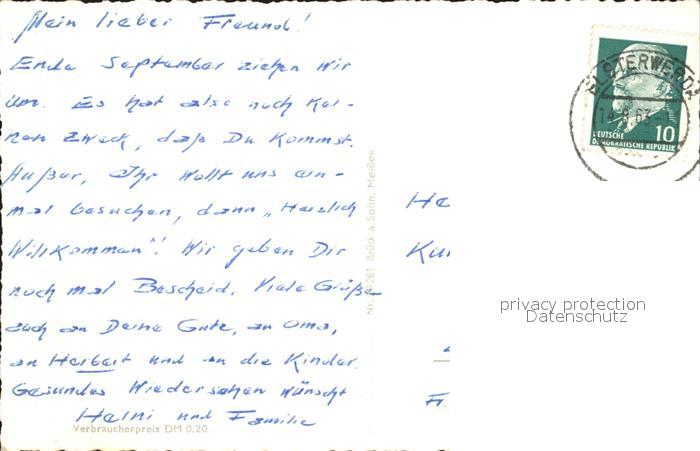 Mein lieber Freund!
Ende September ziehen wir
um. Es hat also noch kei-
nen Zweck, daß Du kommst.
Außer, Ihr wollt uns ein-
mal besuchen, dann „Herzlich
Willkommen"! Wir geben Dir
noch mal Bescheid. Viele Grüße
auch an Deine Gute, an Oma,
an Herbert und an die Kinder.
Gesundes Wiedersehen wünscht
Heini und Familie
Verbraucherpreis DM 0,20
Brück & Sohn, Meißen
ELSTERWERDA
10
DEUTSCHE
DEMOKRATISCHE REPUBLIK
He
privacy protection
Datenschutz